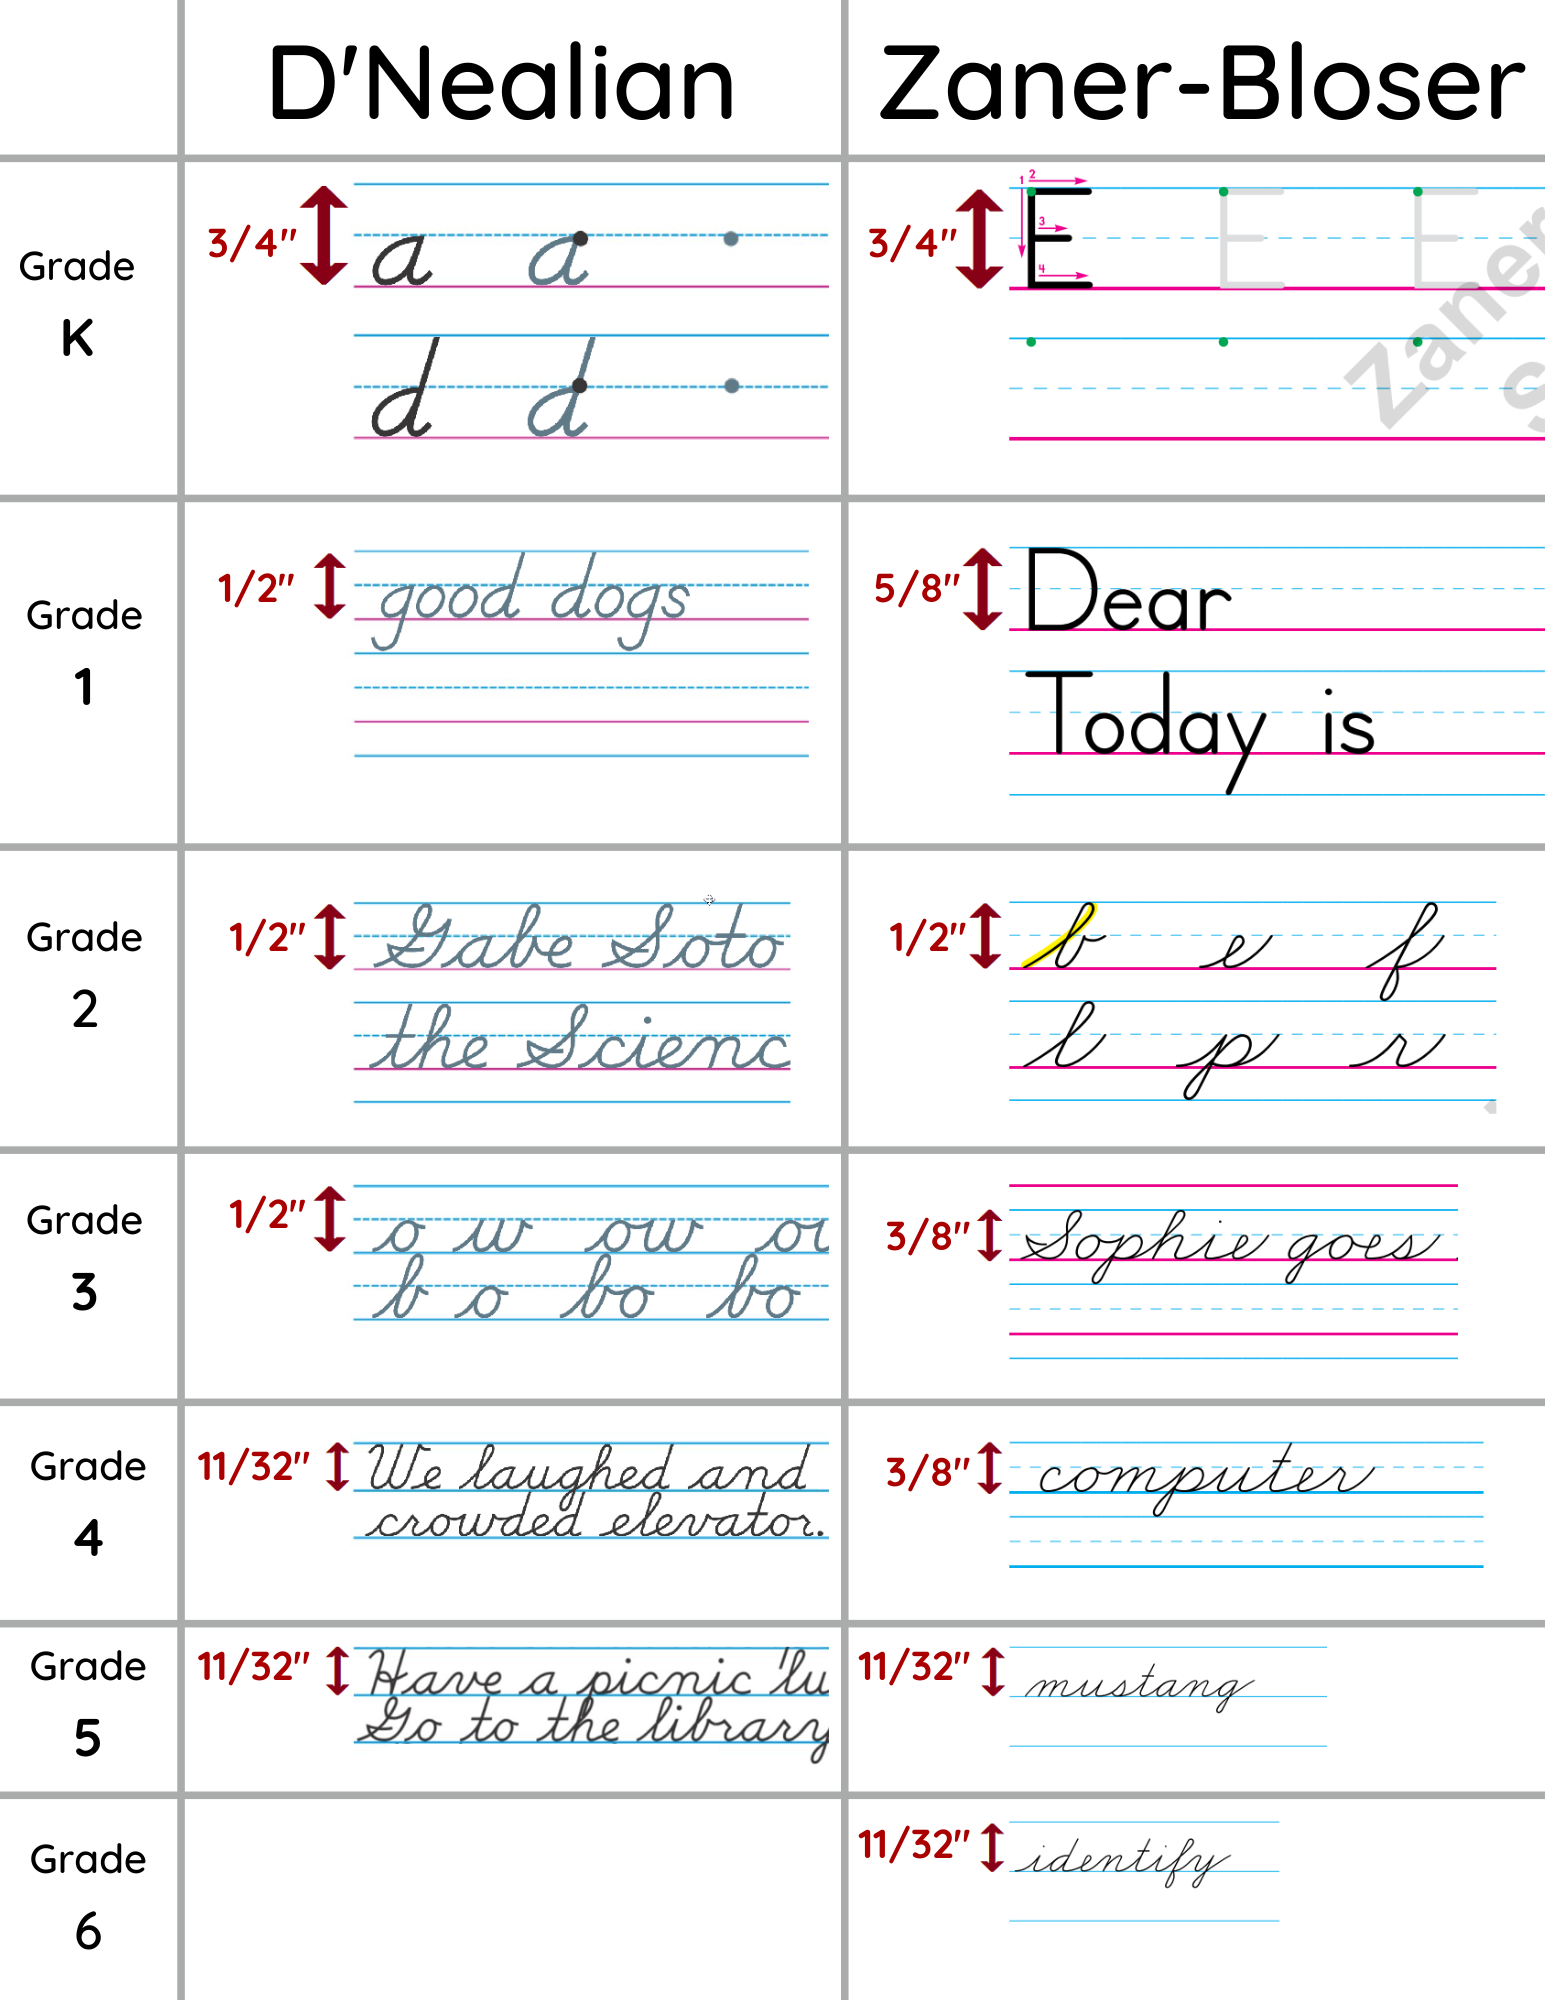 D'Nealian Zaner-Bloser
Grade
K
3/4"
a a
d d
3/4"
1 2
3
4
E E E
Zaner
S
Grade
1
1/2"
good dogs
5/8"
Dear
Today is
Grade
2
1/2"
Gabe Soto
the Scienc
1/2"
b e f
l p r
Grade
3
1/2"
o w ow or
b o bo bo
3/8"
Sophie goes
Grade
4
11/32"
We laughed and
crowded elevator.
3/8"
computer
Grade
5
11/32"
Have a picnic 'lu
Go to the library
11/32"
mustang
Grade
6
11/32"
identify